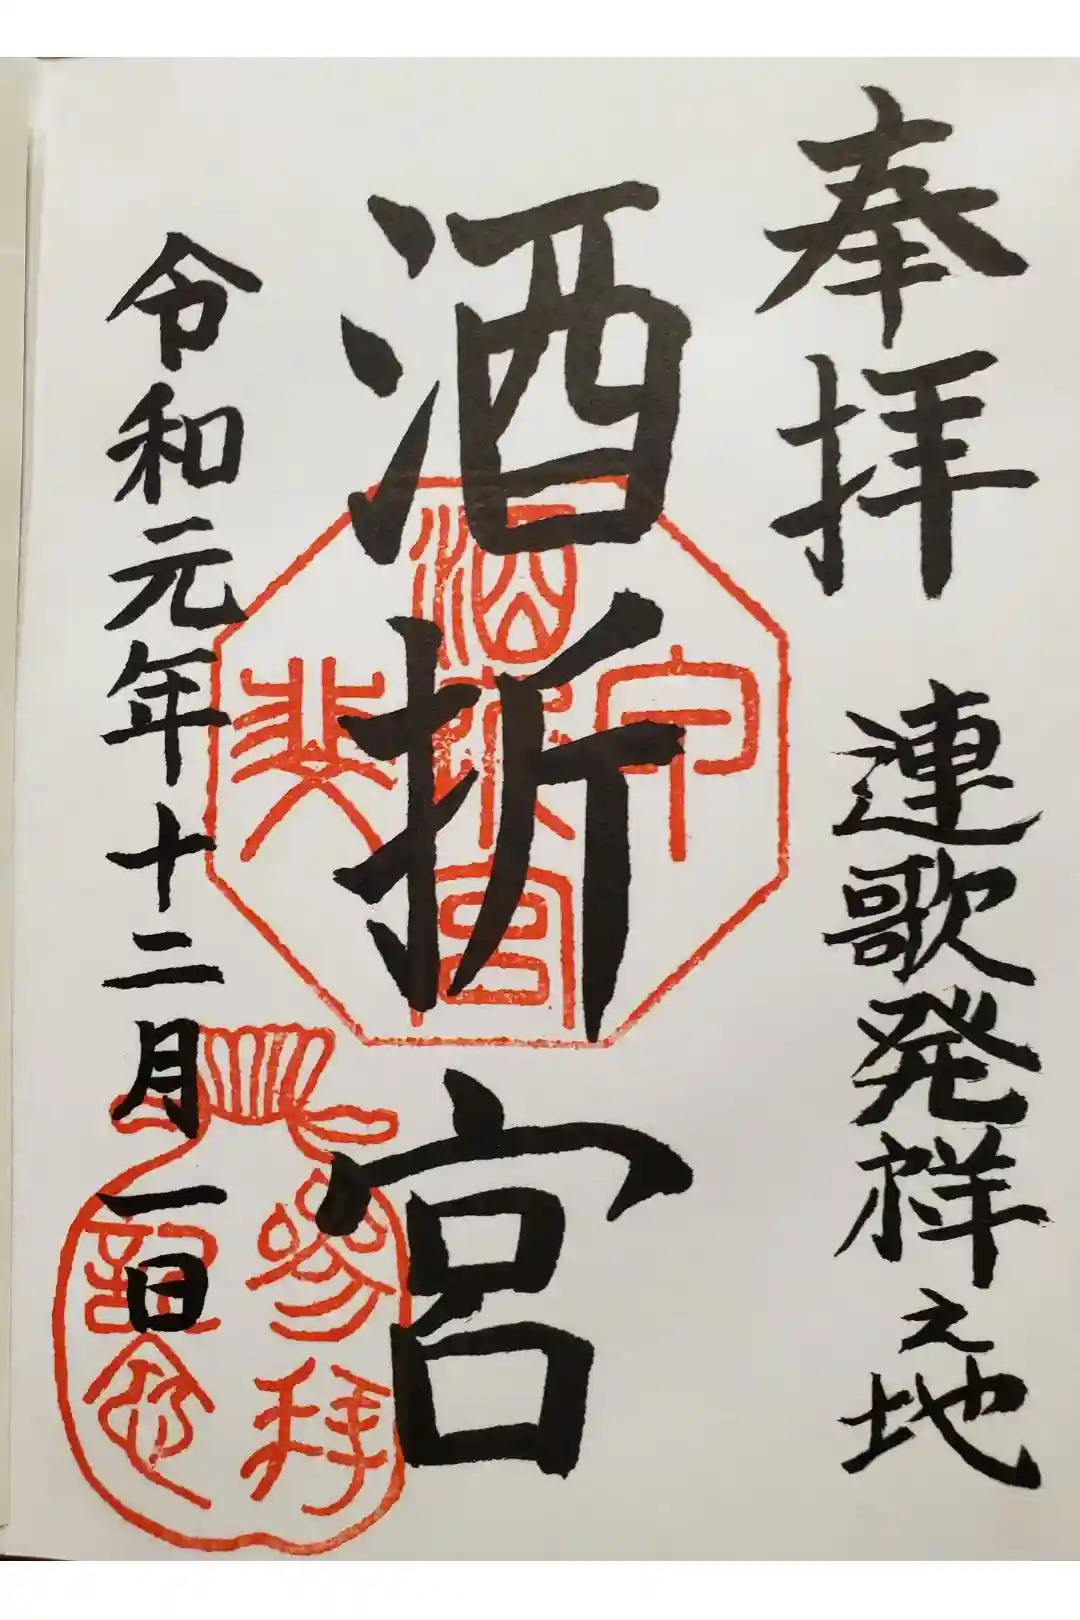 奉拝 連歌発祥之地
酒折宮
令和元年十二月一日
甲斐
酒折宮
参拝
記念